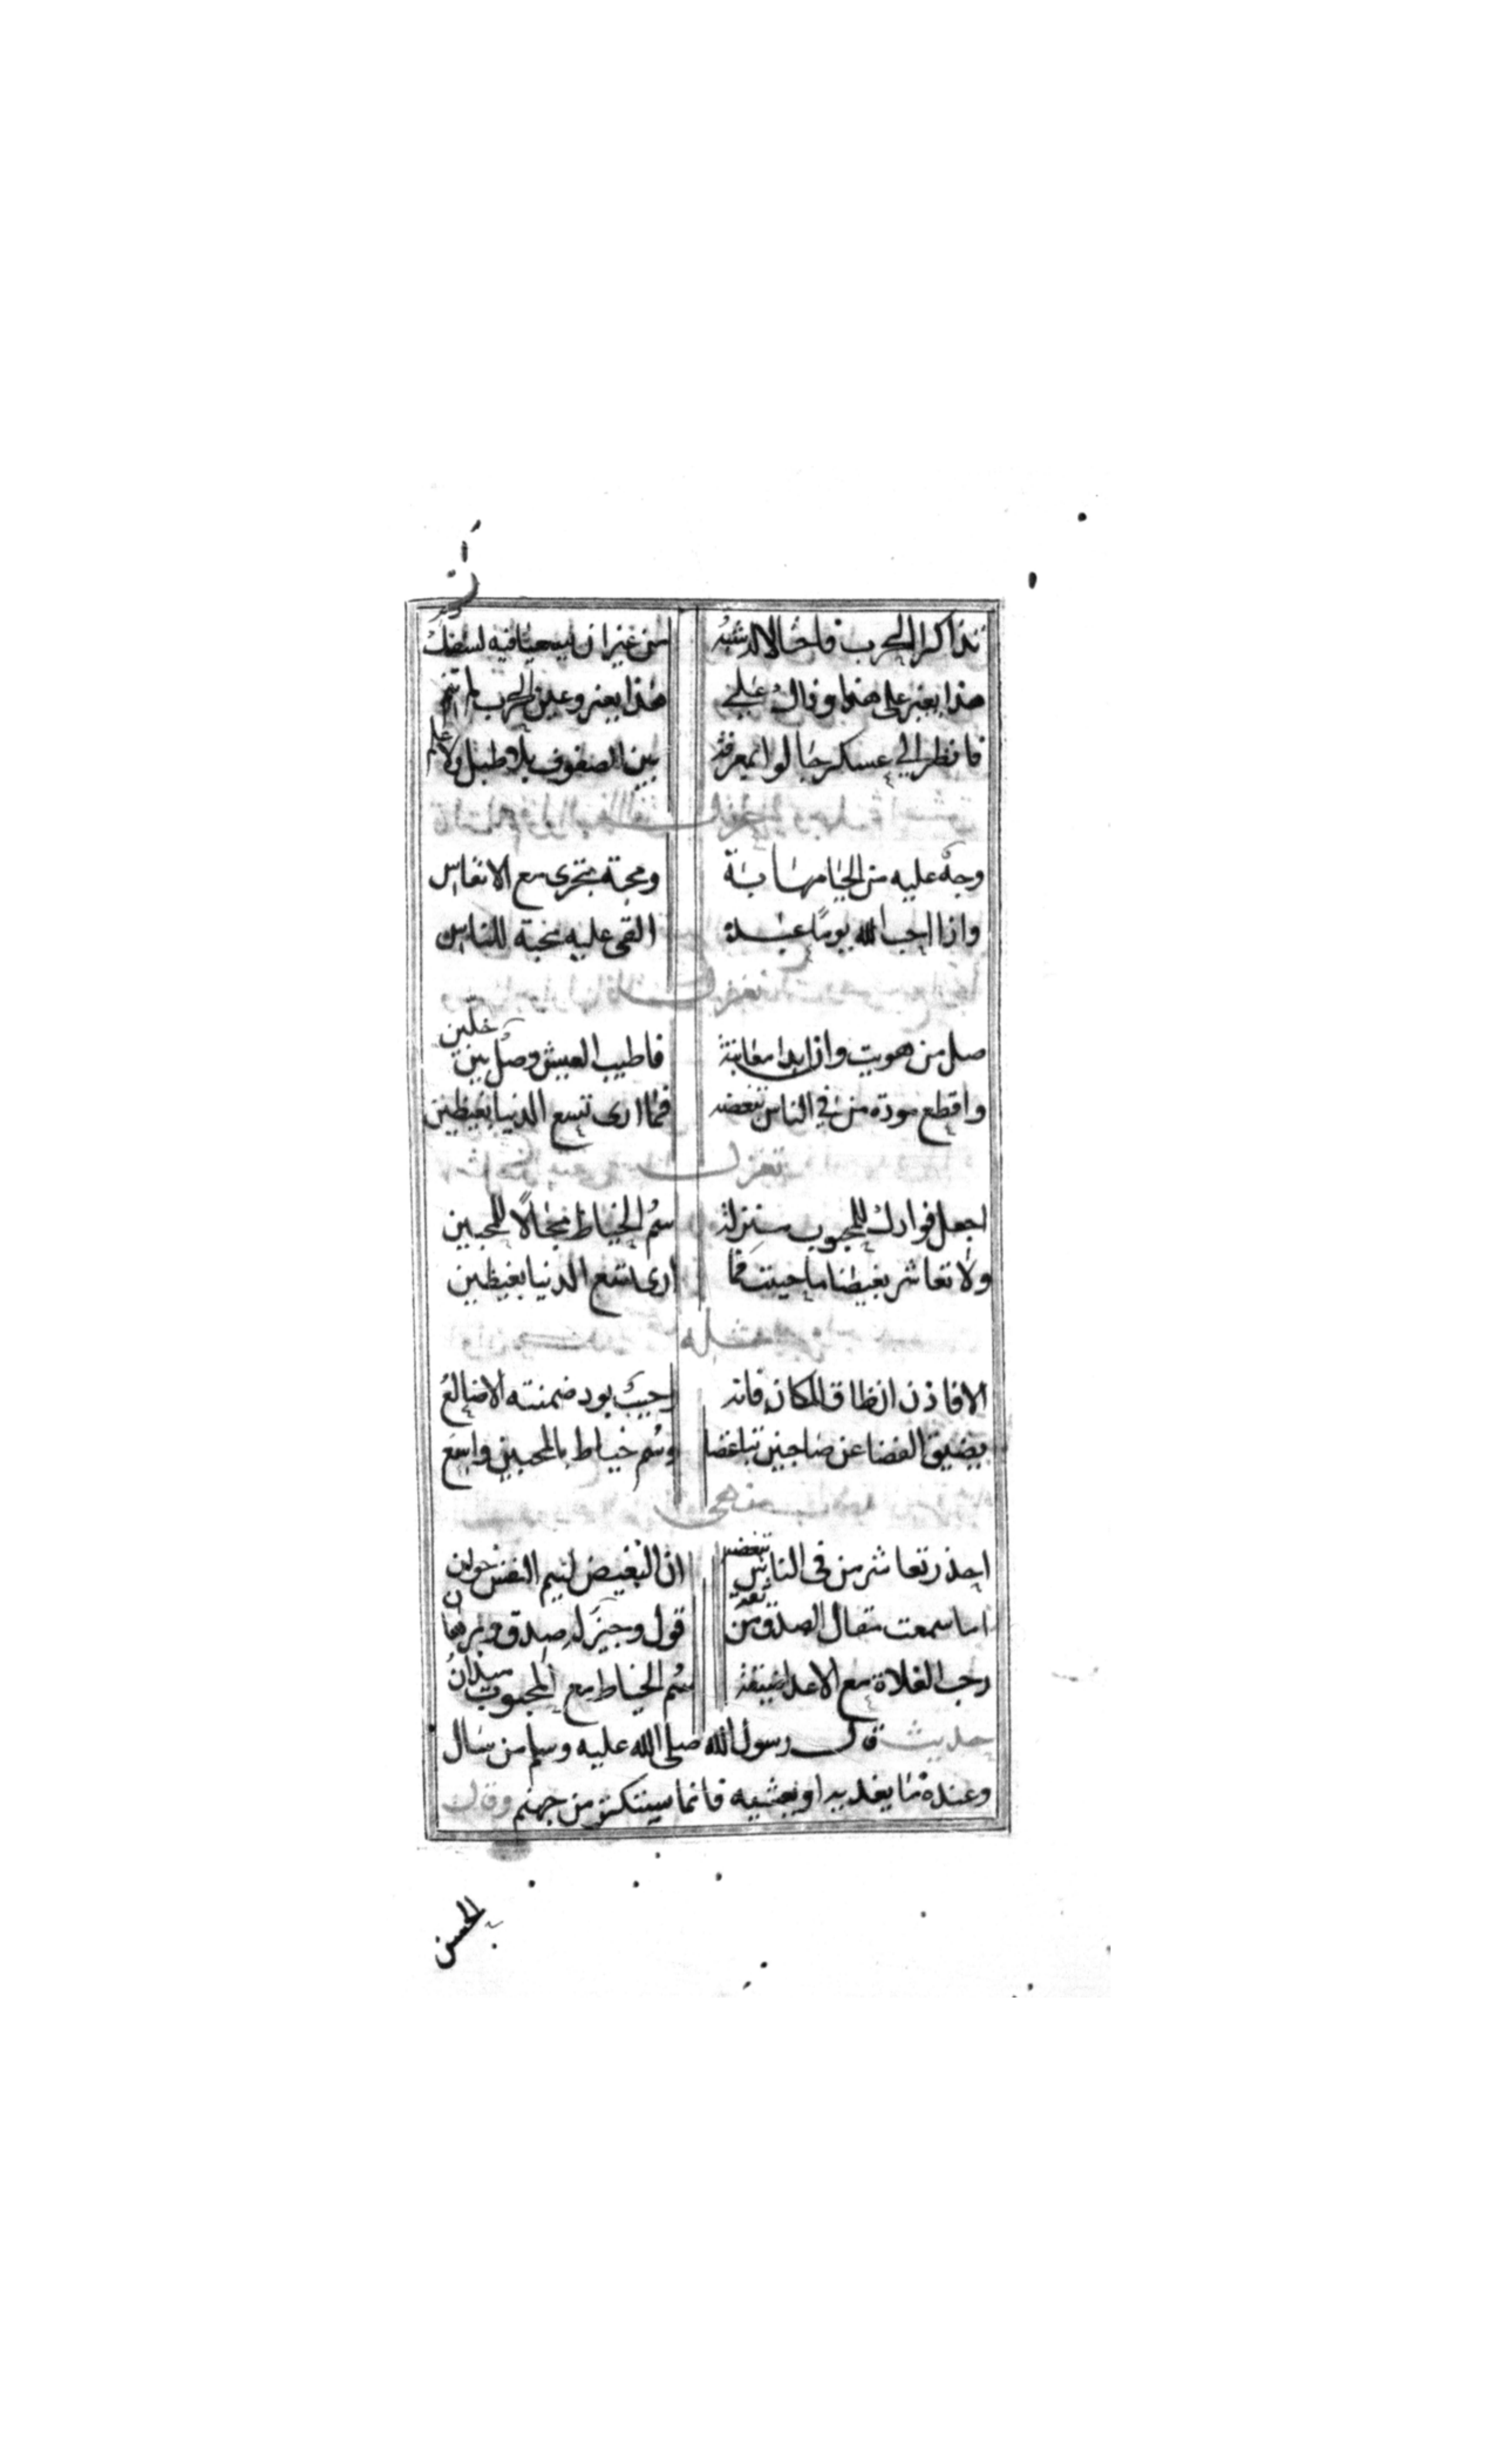 تذاكرا الحرب فاحتالا لدشبه من غير ان يسعيا فيه لسفك دم
هذا يغير على هذا وذاك على هذا يغير وعين الحرب لم تنم
فانظر الى عسكر جالوا بمعرفة بين الصفوف بلا طبل ولا علم
وجه عليه من الحيا مهابة ومحبة تجرى مع الانفاس
واذا احب الله يوما عبده القى عليه محبة للناس
صل من هويت وان ابدا معاتبة فاطيب العيش وصل بين خلين
واقطع مودة من في الناس تبغضه فما ارى تسع الدنيا بغيظين
اجعل فوادك للمحبوب منزلة سم الخياط مجالا للمحبين
ولا تعاشر بغيضا ما حييت فما ارى تسع الدنيا بغيظين
الا فاذن ان ضاق المكان فانه حبيب بود ضمنته الاضالع
يضيق الفضا عن صاحبين تباغضا وسم خياط بالمحبين واسع
احذر تعاشر من فى الناس تبغضه ان البغيض لئيم النفس خوان
اما سمعت مقال الصدق من ثقة قول وجيز له صدق وبرهان
رحب الفلاة مع الاعدا ضيقة سم الخياط مع المحبوب ميدان
حديث قال رسول الله صلى الله عليه وسلم من سال
وعنده ما يغديه او يعشيه فانما يستكثر من جهنم وقال
الحسن